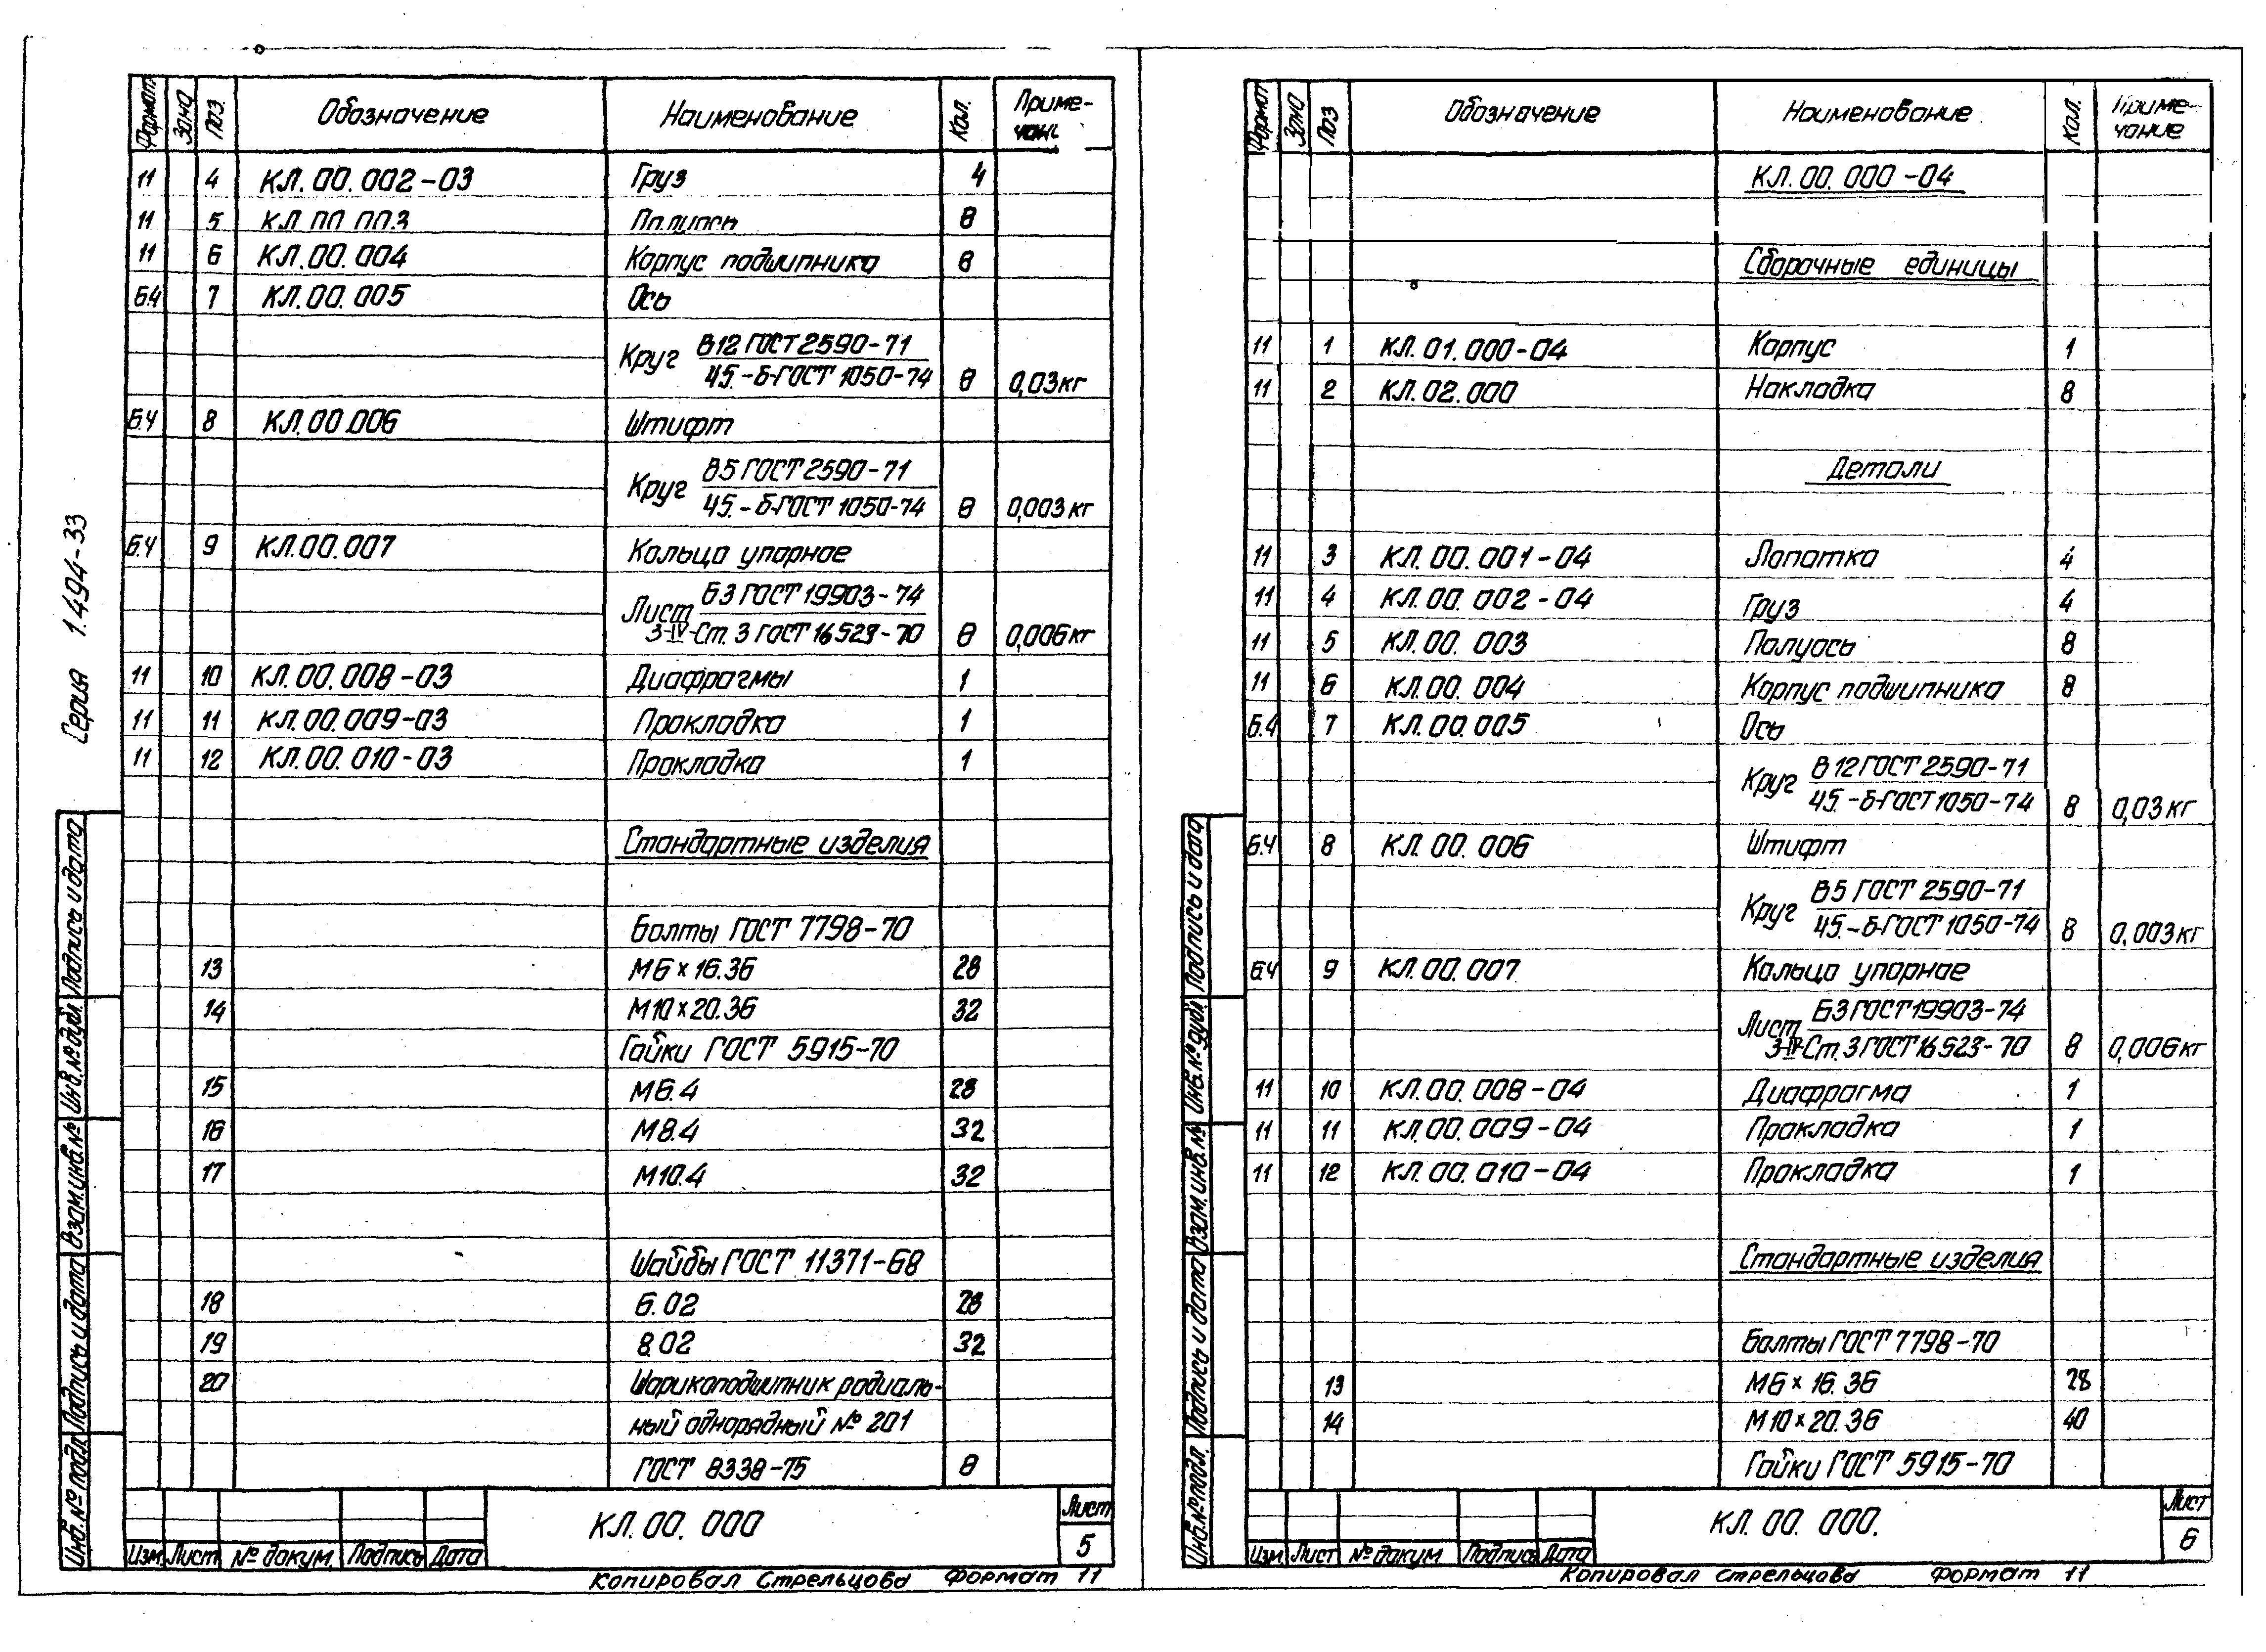 Серия 1.494-33
Формат Зона Поз. Обозначение Наименование Кол. Приме-
чани
11 4 КЛ.00.002-03 Груз 4
11 5 КЛ.00.003 Полуось 8
11 6 КЛ.00.004 Корпус подшипника 8
Б.Ч 7 КЛ.00.005 Ось
Круг В12 ГОСТ 2590-71
45.-б-ГОСТ 1050-74 8 0,03кг
Б.Ч 8 КЛ.00.006 Штифт
Круг В5 ГОСТ 2590-71
45.-б-ГОСТ 1050-74 8 0,003кг
Б.Ч 9 КЛ.00.007 Кольцо упорное
Лист Б3 ГОСТ 19903-74
3-IV-Ст.3 ГОСТ 16523-70 8 0,006кг
11 10 КЛ.00.008-03 Диафрагмы 1
11 11 КЛ.00.009-03 Прокладка 1
11 12 КЛ.00.010-03 Прокладка 1
Стандартные изделия
Болты ГОСТ 7798-70
13 М6×16.36 28
14 М10×20.36 32
Гайки ГОСТ 5915-70
15 М6.4 28
16 М8.4 32
17 М10.4 32
Шайбы ГОСТ 11371-68
18 6.02 28
19 8.02 32
20 Шарикоподшипник радиаль-
ный однорядный № 201
ГОСТ 8338-75 8
Инв.№ подл. Подпись и дата Взам.инв.№ Инв.№ дубл. Подпись и дата
КЛ.00.000
Лист
5
Изм. Лист № докум. Подпись Дата
Копировал Стрельцова Формат 11
Формат Зона Поз Обозначение Наименование Кол. Приме-
чание
КЛ.00.000-04
Сборочные единицы
11 1 КЛ.01.000-04 Корпус 1
11 2 КЛ.02.000 Накладка 8
Детали
11 3 КЛ.00.001-04 Лопатка 4
11 4 КЛ.00.002-04 Груз 4
11 5 КЛ.00.003 Полуось 8
11 6 КЛ.00.004 Корпус подшипника 8
Б.Ч 7 КЛ.00.005 Ось
Круг В12 ГОСТ 2590-71
45.-б-ГОСТ 1050-74 8 0,03кг
Б.Ч 8 КЛ.00.006 Штифт
Круг В5 ГОСТ 2590-71
45.-б-ГОСТ 1050-74 8 0,003кг
Б.Ч 9 КЛ.00.007 Кольцо упорное
Лист Б3 ГОСТ 19903-74
3-IV-Ст.3 ГОСТ 16523-70 8 0,006кг
11 10 КЛ.00.008-04 Диафрагма 1
11 11 КЛ.00.009-04 Прокладка 1
11 12 КЛ.00.010-04 Прокладка 1
Стандартные изделия
Болты ГОСТ 7798-70
13 М6×16.36 28
14 М10×20.36 40
Гайки ГОСТ 5915-70
Инв.№ подл. Подпись и дата Взам.инв.№ Инв.№ дубл. Подпись и дата
КЛ.00.000.
Лист
6
Изм. Лист № докум. Подпись Дата
Копировал Стрельцова Формат 11